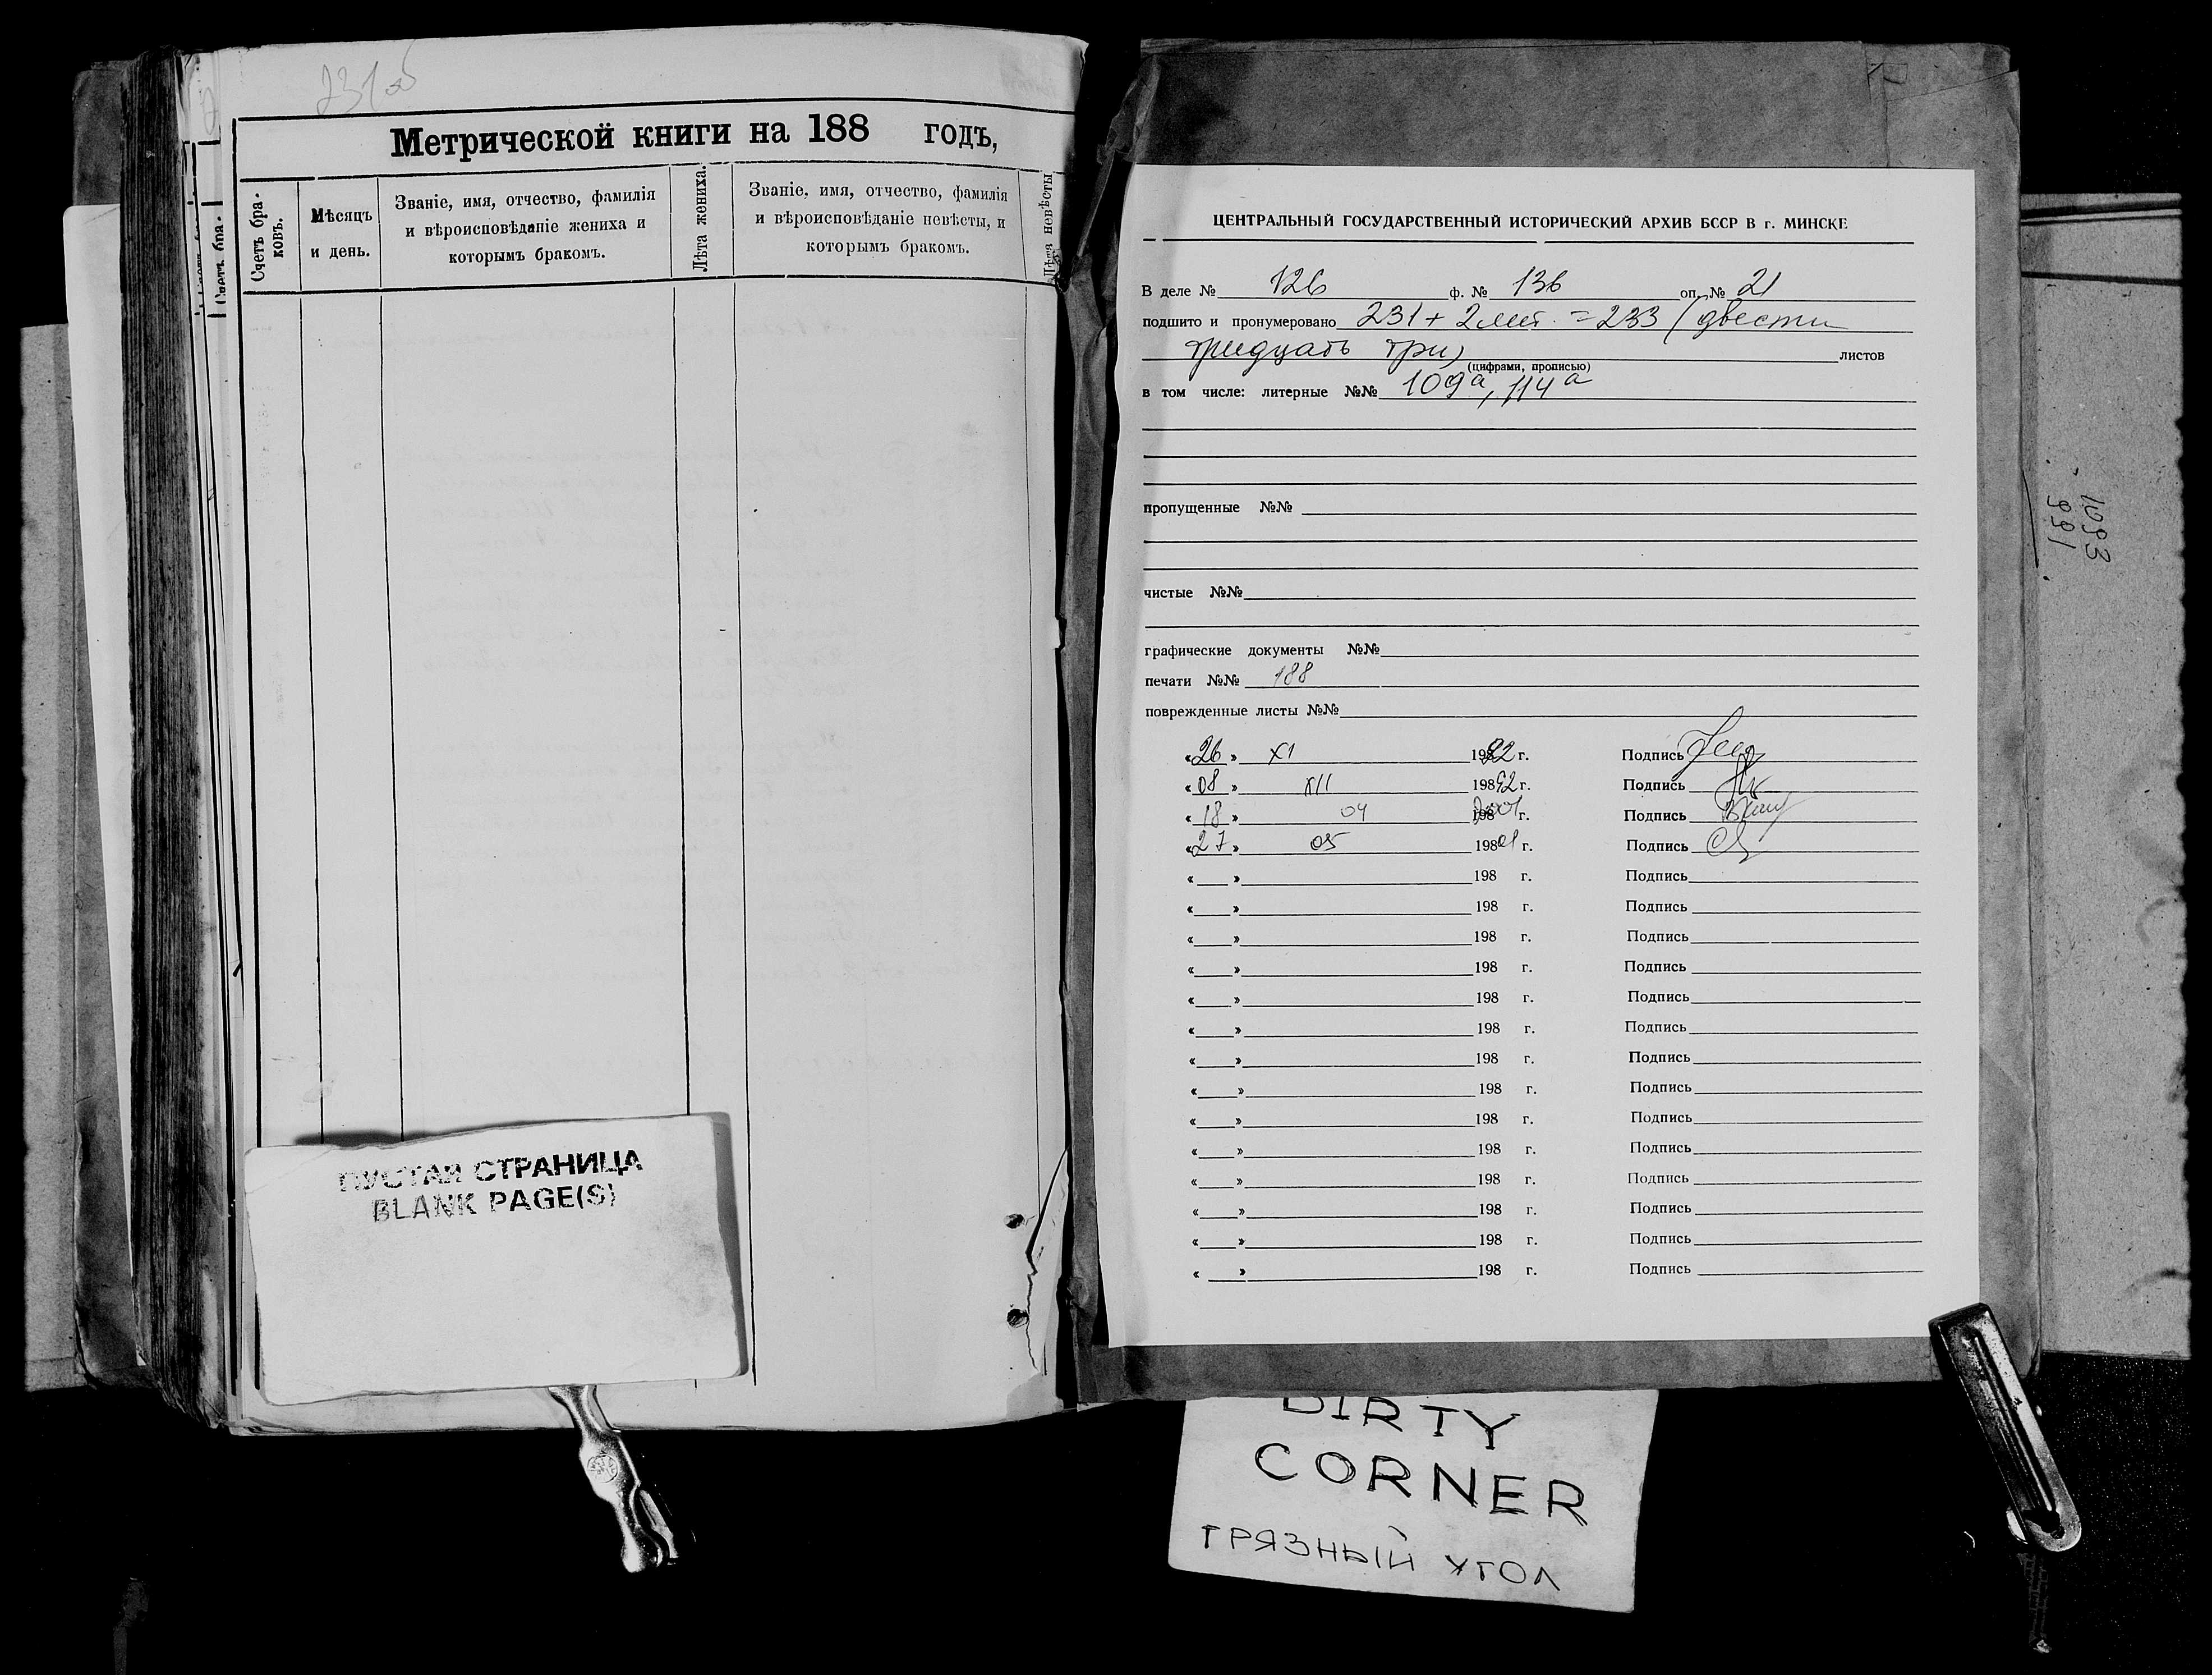 231об
Метрической книги на 188 годъ,
Счетъ бра-
ковъ.
Мѣсяцъ
и день.
Званіе, имя, отчество, фамилія
и вѣроисповѣданіе жениха и
которымъ бракомъ.
Лѣта жениха.
Званіе, имя, отчество, фамилія
и вѣроисповѣданіе невѣсты, и
которымъ бракомъ.
Лѣта невѣсты
ПУСТАЯ СТРАНИЦА
BLANK PAGE(S)
ЦЕНТРАЛЬНЫЙ ГОСУДАРСТВЕННЫЙ ИСТОРИЧЕСКИЙ АРХИВ БССР В г. МИНСКЕ
В деле № 126 ф. № 136 оп. № 21
подшито и пронумеровано 231 + 2 лит. = 233 (двести
тридцать три) листов
(цифрами, прописью)
в том числе: литерные №№ 109а, 114а
пропущенные №№
чистые №№
графические документы №№
печати №№ 188
поврежденные листы №№
«26» XI 1992 г. Подпись
«08» XII 19892 г. Подпись
«18» 04 2001 г. Подпись
«27» 05 19801 г. Подпись
« » 198 г. Подпись
« » 198 г. Подпись
« » 198 г. Подпись
« » 198 г. Подпись
« » 198 г. Подпись
« » 198 г. Подпись
« » 198 г. Подпись
« » 198 г. Подпись
« » 198 г. Подпись
« » 198 г. Подпись
« » 198 г. Подпись
« » 198 г. Подпись
« » 198 г. Подпись
« » 198 г. Подпись
1093
991
DIRTY
CORNER
ГРЯЗНЫЙ УГОЛ